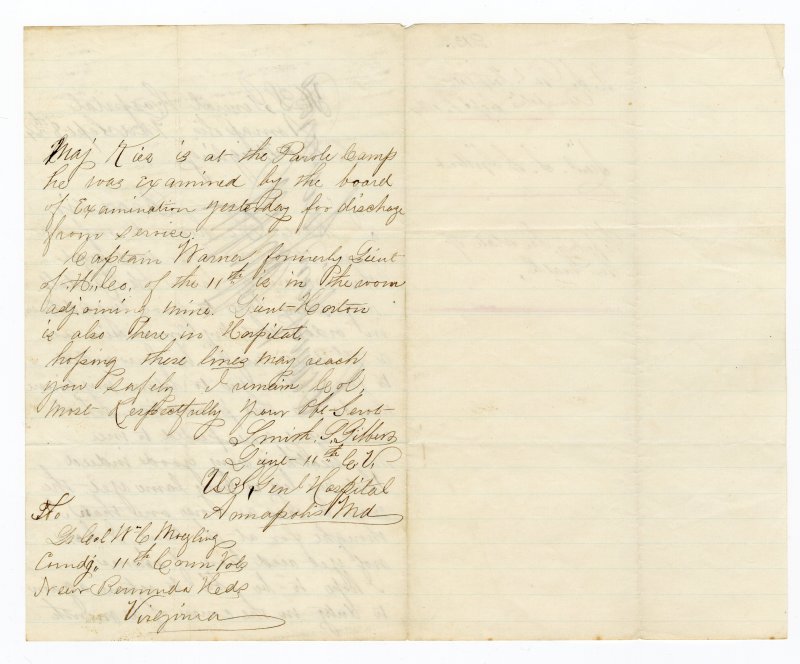 Maj Kies is at the Parole Camp
he was examined by the board
of Examination yesterday for discharge
from service.
Captain Warner formerly Lieut
of H. Co. of the 11th is in the room
adjoining mine. Lieut Horton
is also here in Hospital.
hoping these lines may reach
you safely I remain Col,
Most Respectfully Your Obt Servt
Smith. S. Gilbert
Lieut 11th C. V.
U.S. Genl Hospital
Annapolis Md
To
Lt Col Wm C Moegling
Comdg. 11th Conn Vols
Near Bermuda Hds
Virginia